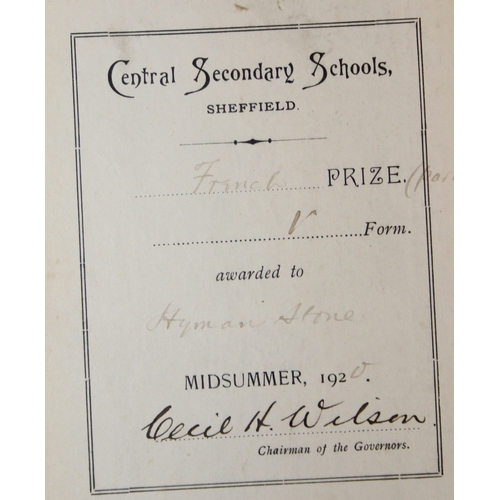 Central Secondary Schools,
SHEFFIELD.
French PRIZE.
V Form.
awarded to
Hyman Stone
MIDSUMMER, 1920.
Cecil H. Wilson.
Chairman of the Governors.